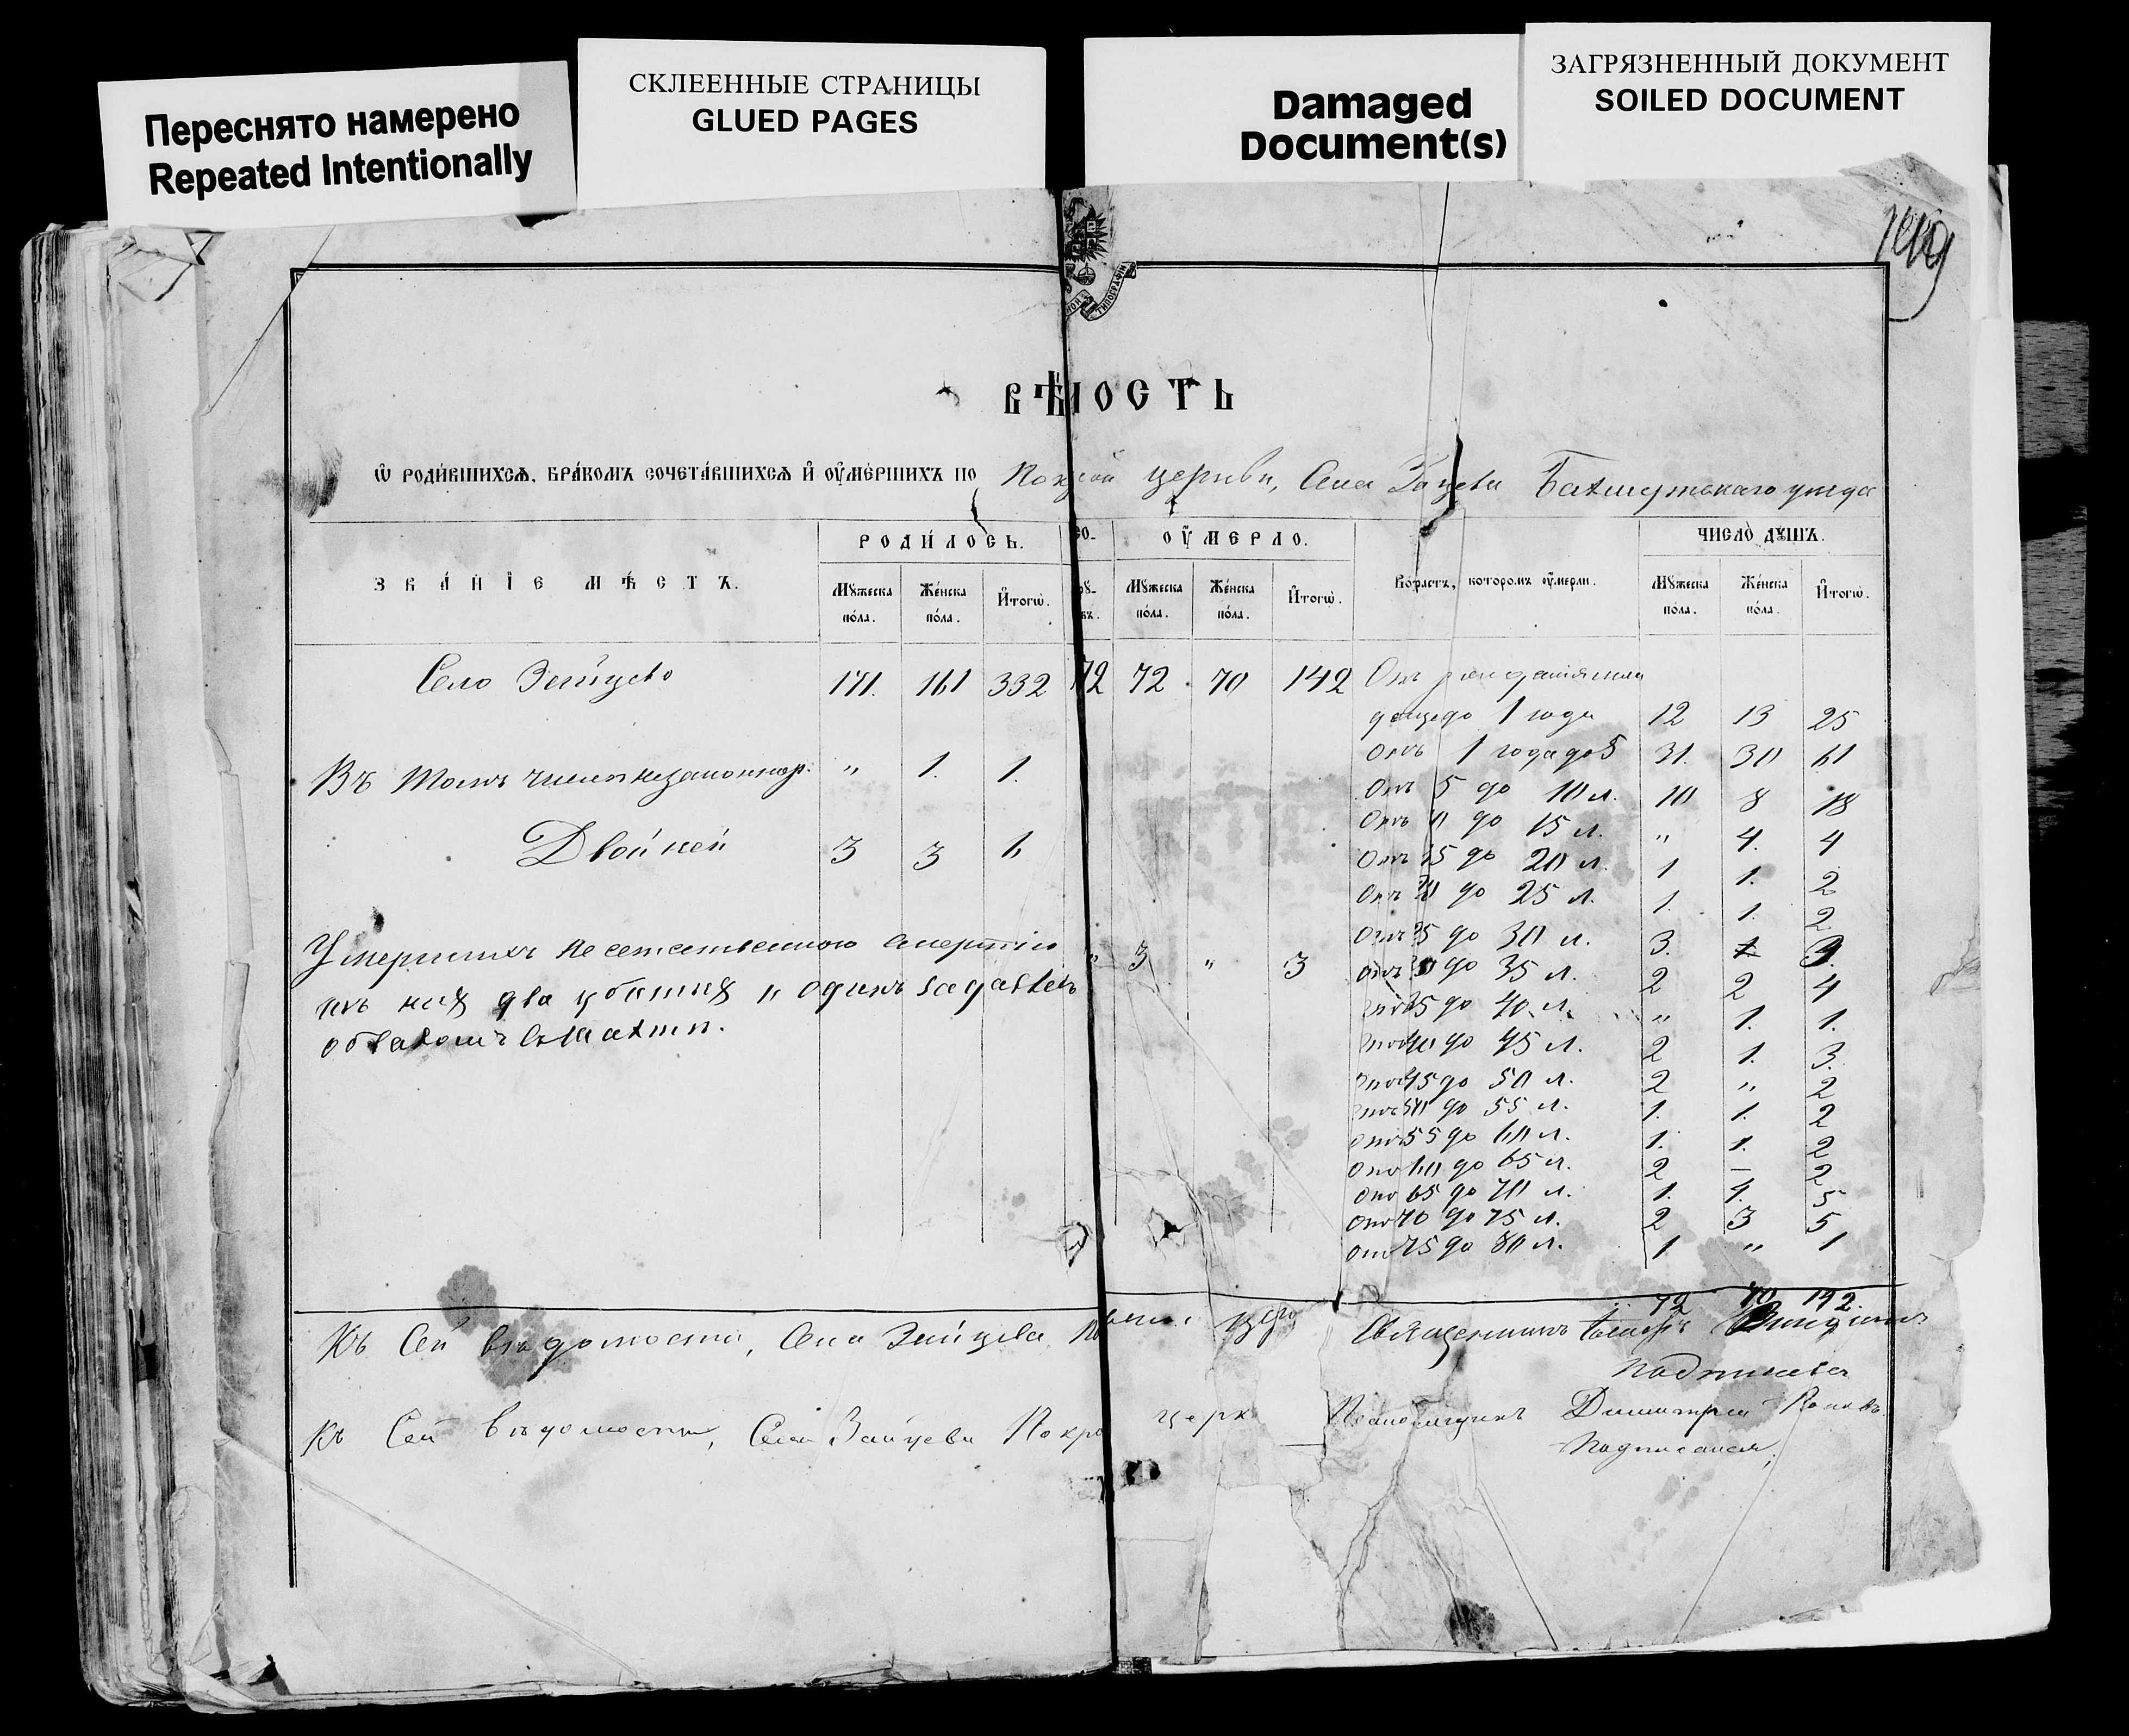 Переснято намерено
Repeated Intentionally
СКЛЕЕННЫЕ СТРАНИЦЫ
GLUED PAGES
Damaged
Document(s)
ЗАГРЯЗНЕННЫЙ ДОКУМЕНТ
SOILED DOCUMENT
ТИПОГРАФІИ
ВѢ ОСТЬ
Ѡ РОДИ́ВШИХСѦ, БРА́КОМЪ СОЧЕТА́ВШИХСѦ И҆ ОУ҆МЕ́РШИХЪ ПО церкви, Села Бахмутскаго уезда
ЗВА́НІЕ МѢ́СТЪ.
РОДИ́ЛОСЬ.
ОУ҆МЕРЛО.
ЧИСЛО̀ ДꙊШЪ.
Мꙋжеска по́ла. Же́нска по́ла. И҆тогѡ̀. Мꙋжеска по́ла. Же́нска по́ла. И҆тогѡ̀. Во́зрастъ, которомъ оу҆мерли. Мꙋжеска по́ла. Же́нска по́ла. И҆тогѡ̀.
Село Зайцево 171. 161 332 72 72 70 142 Отъ рожденія
до 1 года 12 13 25
Отъ 1 года до 5 31. 30 61
Въ томъ числѣ незаконнор. " 1. 1.
Отъ 5 до 10 л. 10 8 18
Отъ 10 до 15 л. " 4. 4
Двойней 3 3 6
Отъ 15 до 20 л. 1 1. 2
Отъ 20 до 25 л. 1. 1. 2
Отъ 25 до 30 л. 3. 3.
Умершихъ не естественною смертію " 3 " 3
Отъ 30 до 35 л. 2 2 4
изъ них два убитыя и одинъ задавленъ
Отъ 35 до 40 л. " 1. 1.
обваломъ в шахти.
Отъ 40 до 45 л. 2 1. 3.
Отъ 45 до 50 л. 2 " 2
Отъ 50 до 55 л. 1. 1. 2
Отъ 55 до 60 л. 1. 1. 2
Отъ 60 до 65 л. 2 — 2
Отъ 65 до 70 л. 1. 4. 5
Отъ 70 до 75 л. 2 3 5
Отъ 75 до 80 л. 1 " 1
72 70 142.
Къ Сей вѣдомости, Села Зайцева Священникъ
Къ Сей Вѣдомости, Села Зайцева Покро церк Псаломщикъ Димитрій Поповъ
Подписался.